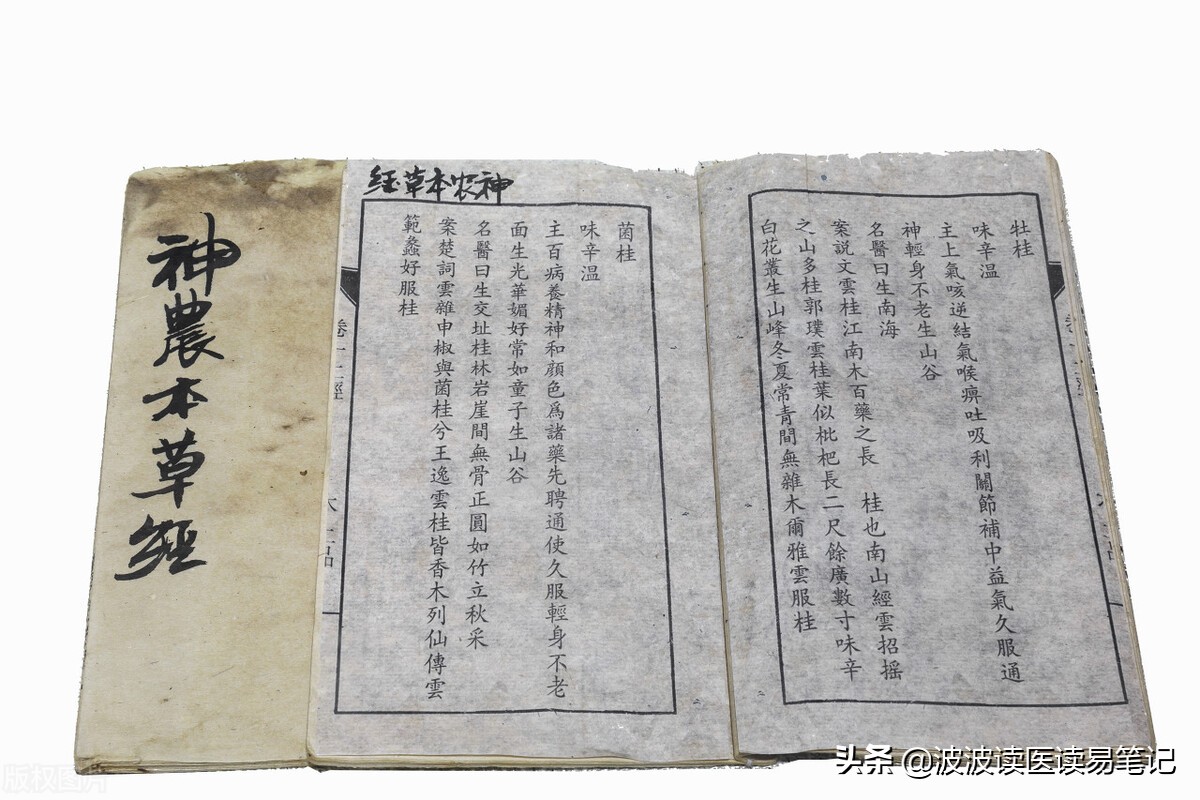 牡桂
味辛溫
主上氣咳逆結氣喉痹吐吸利關節補中益氣久服通
神輕身不老生山谷
名醫曰生南海
案說文雲桂江南木百藥之長 桂也南山經雲招摇
之山多桂郭璞雲桂葉似枇杷長二尺餘廣數寸味辛
白花叢生山峰冬夏常青間無雜木爾雅雲服桂
神农本草経
菌桂
味辛温
主百病養精神和顔色爲諸藥先聘通使久服輕身不老
面生光華媚好常如童子生山谷
名醫曰生交址桂林岩崖間無骨正圓如竹立秋采
案楚詞雲雜申椒與菌桂兮王逸雲桂皆香木列仙傳雲
範蠡好服桂
神農本草經
版权图片
头条 @波波读医读易笔记